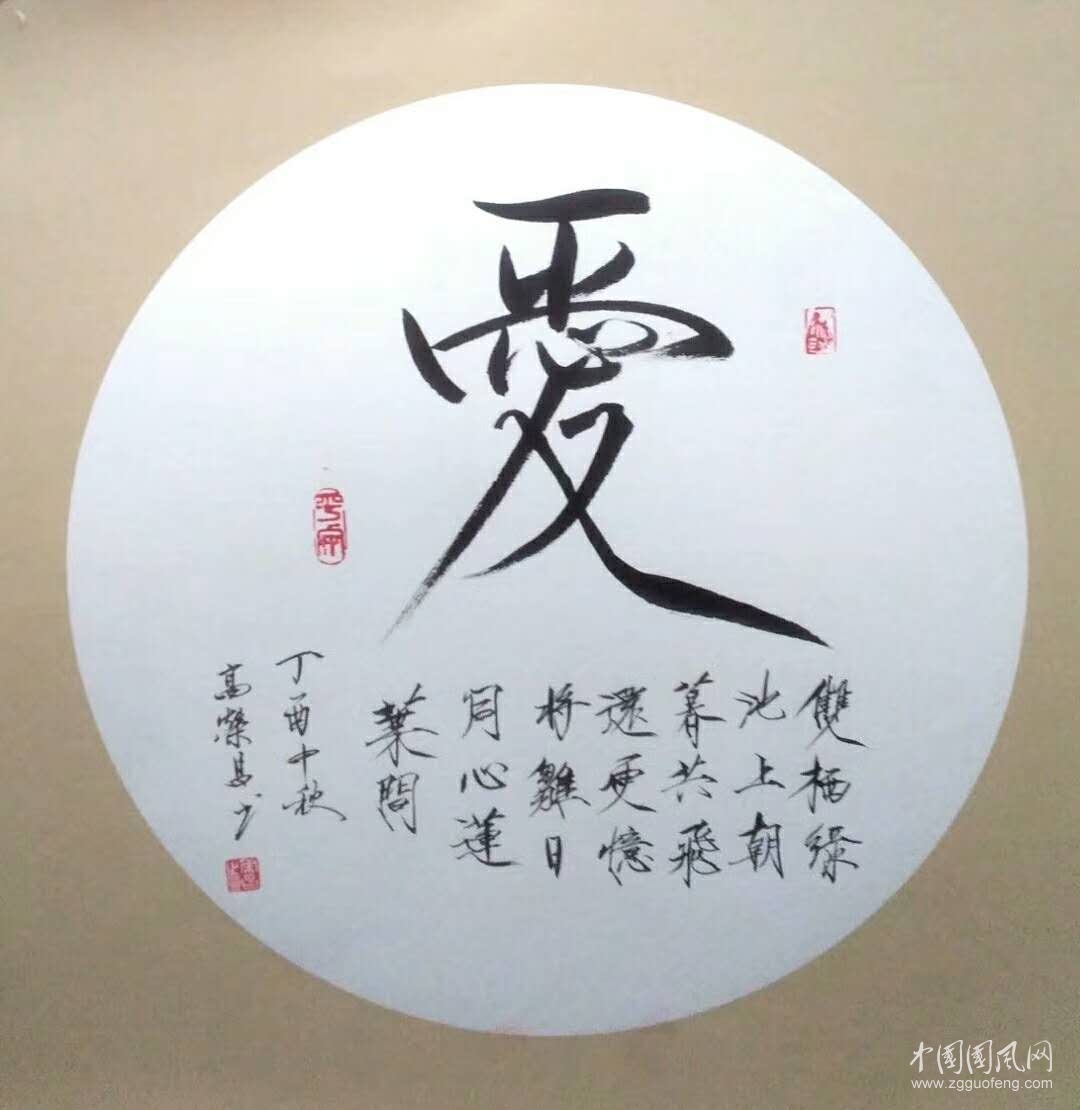 愛
雙栖綠
池上朝
暮共飛
還更憶
將雛日
同心蓮
葉間
丁酉中秋
高榮昌书
平安
中國國风网
www.zgguofeng.com